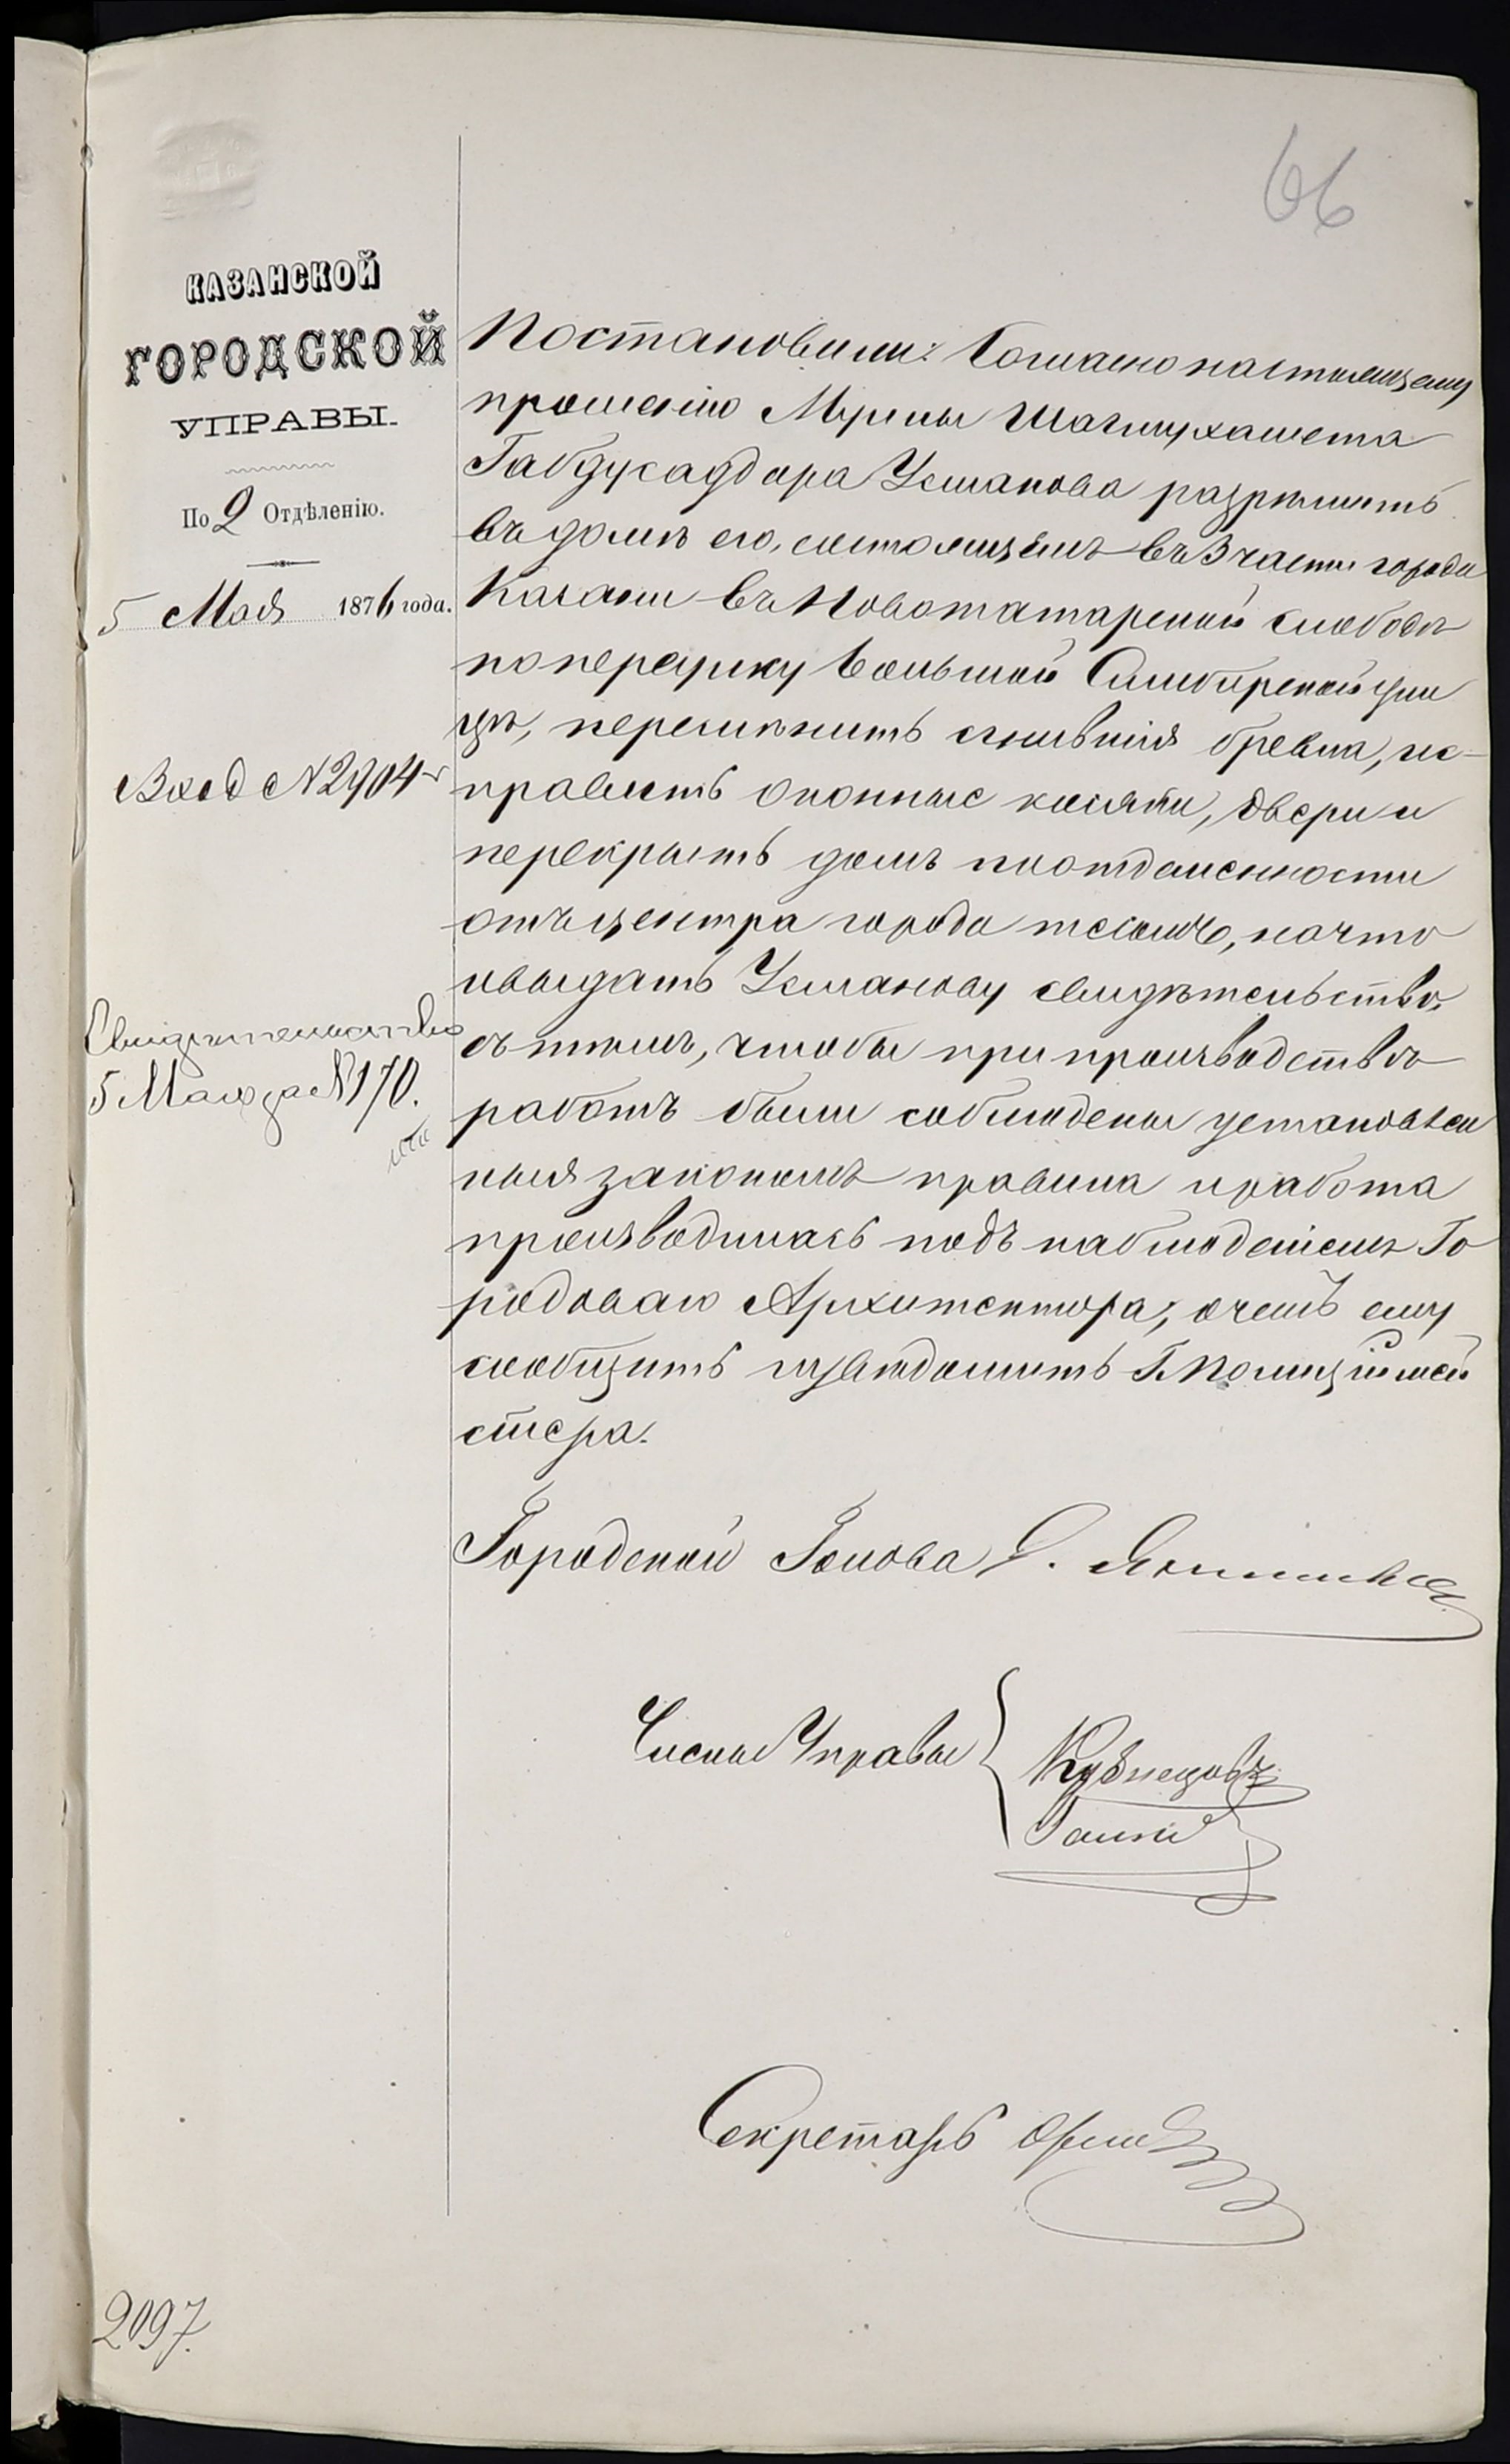 66
КАЗАНСКОЙ
ГОРОДСКОЙ
УПРАВЫ.
По 2 Отдѣленію.
5 Мая 1876 года.
Вход №2904
Свидѣтельство
5 Мая за №170.
Постановили: Согласно настоящему
прошенію Мурзы Шагимухамета
Габдусаддара Усманова разрѣшить
въ домѣ его, состоящемъ въ 3 части города
Казани въ Новотатарской слободѣ
по переулку Большой Симбирской ули
цѣ, перемѣнить сгнившія бревна, ис-
править оконные косяки, двери и
перекрыть домъ по отдаленности
отъ центра города тесомъ, на что
и выдать Усманову свидѣтельство,
съ тѣмъ, чтобы при производствѣ
работъ были соблюдены установлен
ныя закономъ правила и работа
производилась подъ наблюденіемъ Го
родоваго Архитектора, о чемъ ему
сообщить и увѣдомить Г. Полиціймей
стера.
Городской Голова
Члены Управы
Кузнецовъ
Секретарь
2097.